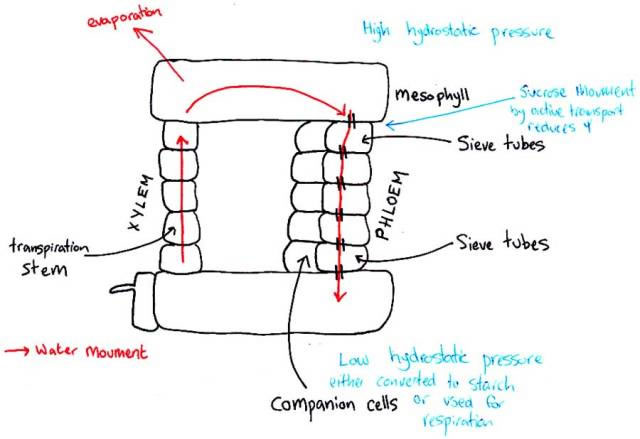 evaporation
High hydrostatic pressure
mesophyll
Sucrose Movment
by active transport
reduces Ψ
Sieve tubes
XYLEM
PHLOEM
transpiration
stem
Sieve tubes
→ Water moument
Low hydrostatic pressure
either converted to starch
or used for
respiration
Companion cells